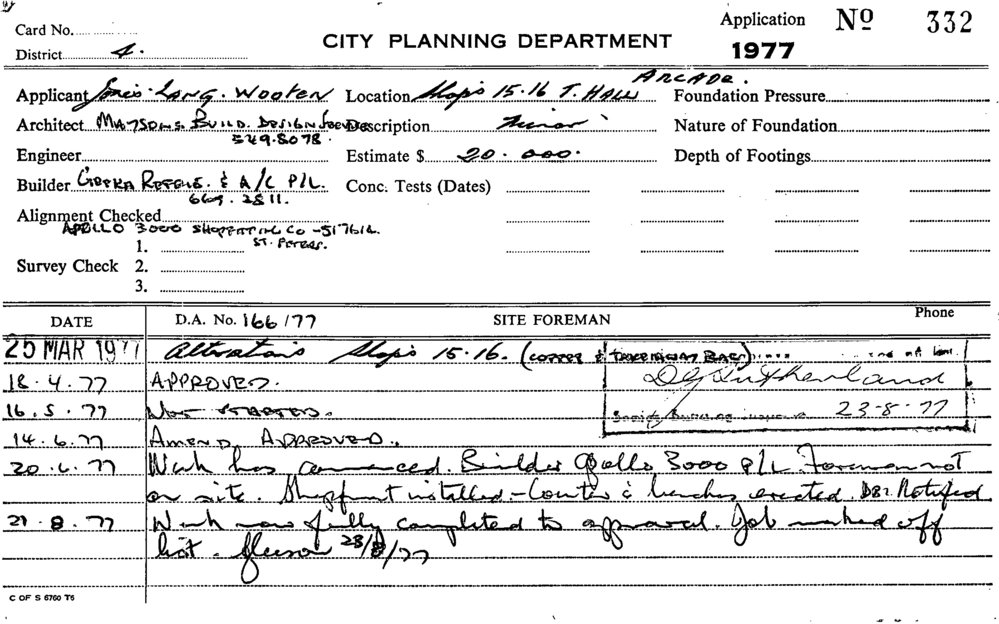 Card No.
District 4.
CITY PLANNING DEPARTMENT
Application No 332
1977
Applicant Jones Lang. Wooten Location Shops 15.16 T. HALL ARCADE. Foundation Pressure
Architect MATSONS BUILD. DESIGN Description Minor Nature of Foundation
549.8078.
Engineer Estimate $ 20.000. Depth of Footings
Builder REFGE. & A/C P/L. Conc. Tests (Dates)
669.2811.
Alignment Checked
APOLLO 3000 SHOPFITTING CO - 517612.
ST. PETERS.
1.
Survey Check 2.
3.
DATE D.A. No. 166/77 SITE FOREMAN Phone
25 MAR 1977 Alterations Shops 15.16. (COFFEE & TAKEAWAY BAR)
18.4.77 APPROVED. D G Sutherland
16.5.77 NOT STARTED. 23-8-77
14.6.77 AMEND. APPROVED.
20.6.77 Work has commenced. Builder Apollo 3000 P/L. Foreman not
on site. Shopfront installed - Counter & benches erected. Notified
21.8.77 Work now fully completed to approval. Job marked off
list. 28/8/77
C OF S 6760 T6